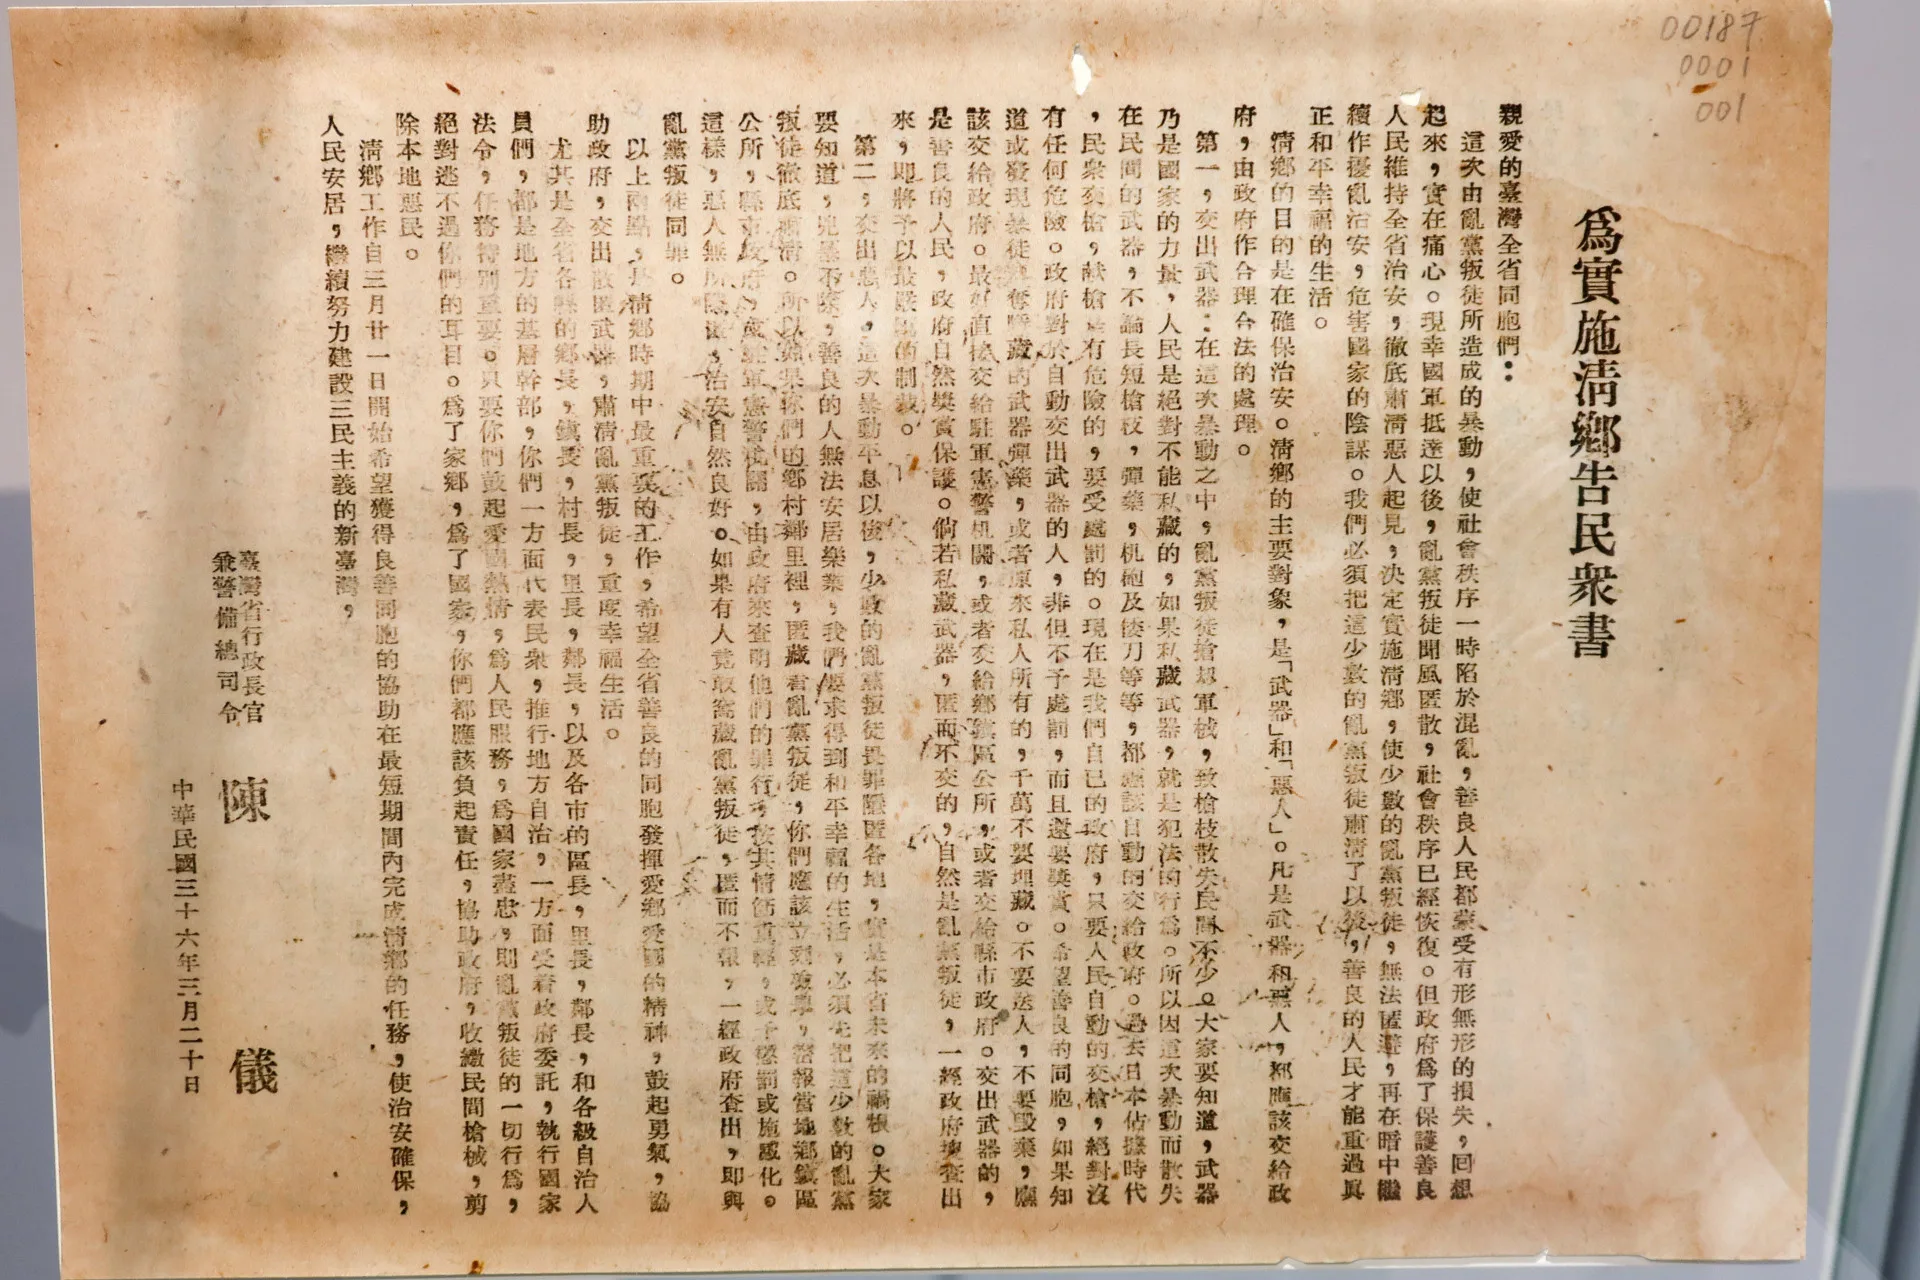 00187
0001
001
為實施清鄉告民衆書
親愛的臺灣全省同胞們：
這次由亂黨叛徒所造成的暴動，使社會秩序一時陷於混亂，善良人民都蒙受有形無形的損失，回想
起來，實在痛心。現幸國軍抵達以後，亂黨叛徒聞風匿散，社會秩序已經恢復。但政府爲了保護善良
人民維持全省治安，徹底肅清惡人起見，決定實施清鄉，使少數的亂黨叛徒，無法匿避，再在暗中繼
續作擾亂治安，危害國家的陰謀。我們必須把這少數的亂黨叛徒肅清了以後，善良的人民才能重過眞
正和平幸福的生活。
清鄉的目的是在確保治安。清鄉的主要對象，是「武器」和「惡人」。凡是武器和惡人，都應該交給政
府，由政府作合理合法的處理。
第一，交出武器：在這次暴動之中，亂黨叛徒搶刼軍械，致槍枝散失民間不少。大家要知道，武器
乃是國家的力量，人民是絕對不能私藏的，如果私藏武器，就是犯法的行爲。所以因這次暴動而散失
在民間的武器，不論長短槍枝，彈藥，机砲及倭刀等等，都應該自動的交給政府。過去日本佔據時代
，民衆交槍，献槍是有危險的，要受處罰的。現在是我們自己的政府，只要人民自動的交槍，絕對沒
有任何危險。政府對於自動交出武器的人，非但不予處罰，而且還要獎賞。希望善良的同胞，如果知
道或發現暴徒奪藏的武器彈藥，或者原來私人所有的，千萬不要埋藏。不要送人，不要毀棄，應
該交給政府。最好直接交給駐軍憲警机關，或者交給鄉鎮區公所，或者交給縣市政府。交出武器的，
是善良的人民，政府自然獎賞保護。倘若私藏武器，匿而不交的，自然是亂黨叛徒，一經政府搜查出
來，即將予以最嚴厲的制裁。
第二，交出惡人。這次暴動平息以後，少數的亂黨叛徒畏罪隱匿各地，實是本省未來的禍根。大家
要知道，兇暴不除，善良的人無法安居樂業，我們要求得到和平幸福的生活，必須先把這少數的亂黨
叛徒徹底肅清。所以如果你們的鄉村鄰里裡，匿藏着亂黨叛徒，你們應該立刻檢舉，密報當地鄉鎮區
公所，縣市政府，或駐軍憲警机關，由政府來查明他們的罪行，按其情節重輕，或予懲罰或施感化。
這樣，惡人無所隱匿，治安自然良好。如果有人竟敢窩藏亂黨叛徒，匿而不報，一經政府查出，即與
亂黨叛徒同罪。
以上兩點，是清鄉時期中最重要的工作，希望全省善良的同胞發揮愛鄉愛國的精神，鼓起勇氣，協
助政府，交出散匿武器，肅清亂黨叛徒，重度幸福生活。
尤其是全省各縣的鄉長，鎮長，村長，里長，鄰長，以及各市的區長，里長，鄰長，和各級自治人
員們，都是地方的基層幹部，你們一方面代表民衆，推行地方自治，一方面受着政府委託，執行國家
法令，任務特別重要。只要你們鼓起愛國熱情，爲人民服務，爲國家盡忠，則亂黨叛徒的一切行爲，
絕對逃不過你們的耳目。爲了家鄉，爲了國家，你們都應該負起責任，協助政府，收繳民間槍械，剪
除本地惡民。
清鄉工作自三月廿一日開始希望獲得良善同胞的協助在最短期間內完成清鄉的任務，使治安確保，
人民安居，繼續努力建設三民主義的新臺灣，
臺灣省行政長官
兼警備總司令
陳　儀
中華民國三十六年三月二十日